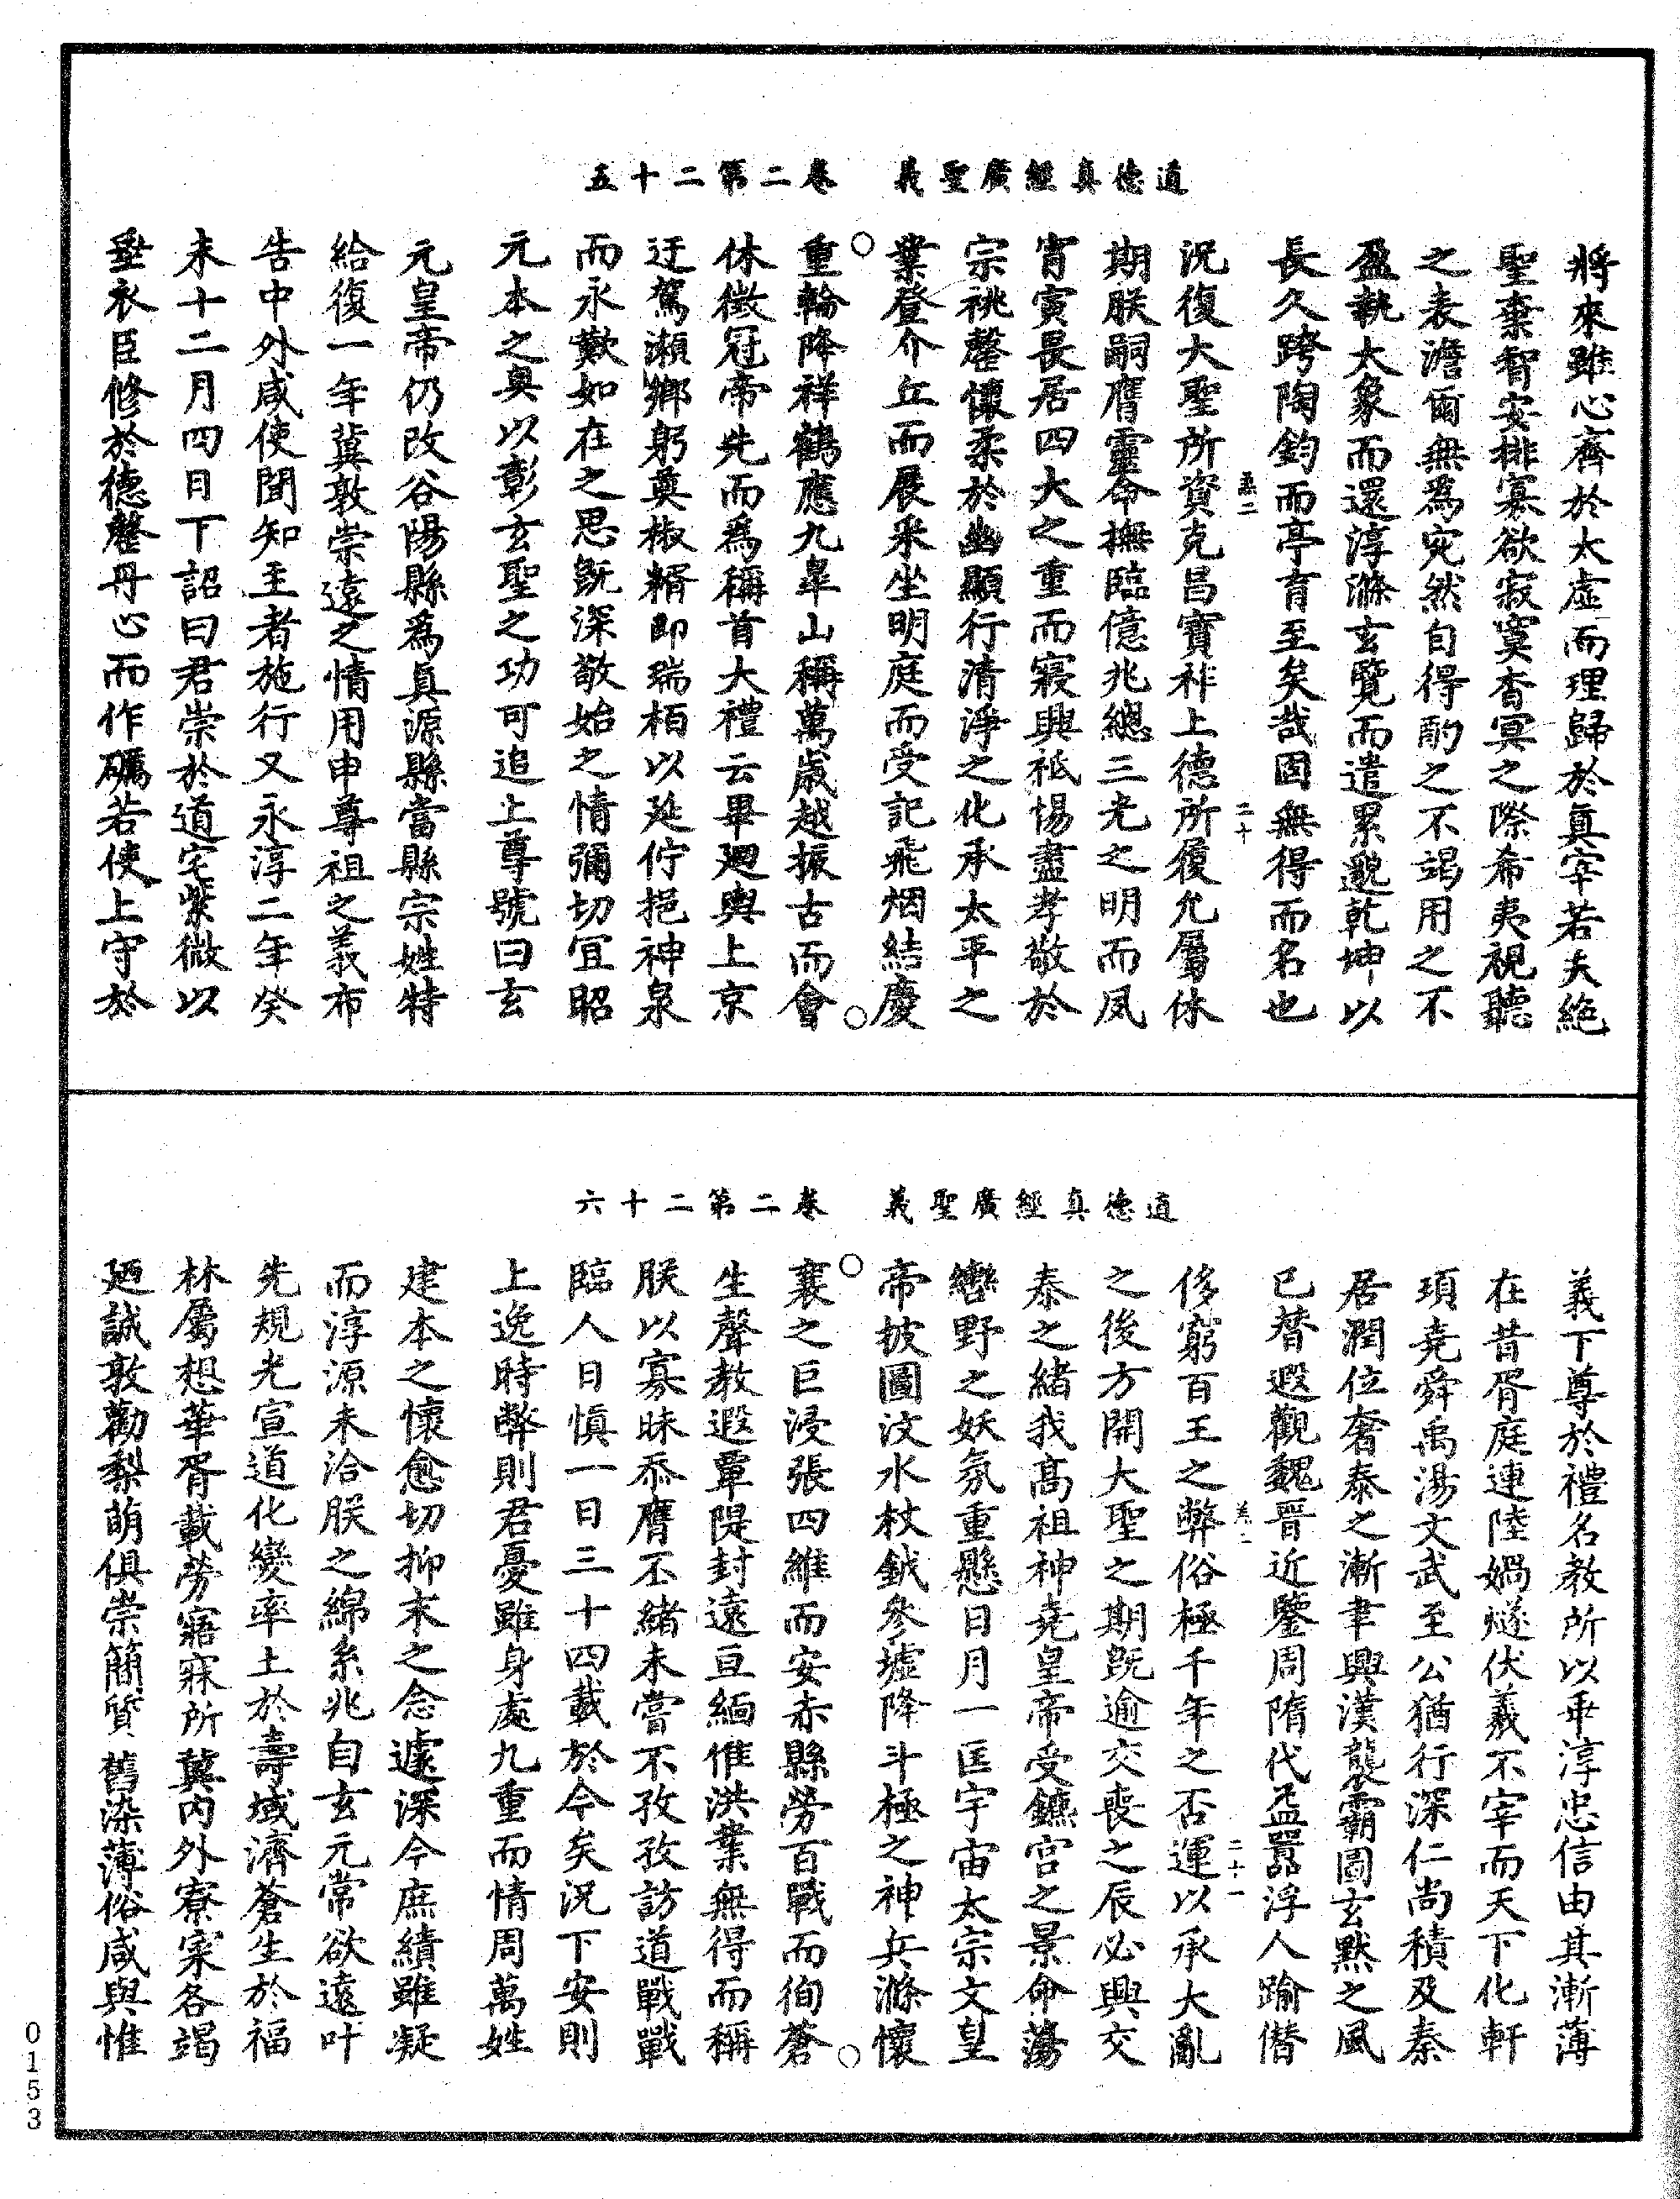 道德真經廣聖義　卷二第二十五
將來雖心齊於太虛而理歸於真宰若夫絕
聖棄智安排寡欲寂寞杳冥之際希夷視聽
之表澹爾無為宛然自得酌之不竭用之不
盈執太象而還淳滌玄覽而遣累邈乾坤以
長久跨陶鈞而亭育至矣哉固無得而名也
況復大聖所資克昌寶祚上德所履允屬休
期朕嗣膺靈命撫臨億兆總三光之明而夙
宵寅畏居四大之重而寢興祗惕盡孝敬於
宗祧罄懷柔於幽顯行清淨之化承太平之
業登介丘而展采坐明庭而受記飛烟結慶
重輪降祥鶴應九皐山稱萬歲越振古而會
休徵冠帝先而為稱首大禮云畢廻輿上京
迂駕瀨鄉躬奠椒糈即瑞栢以延佇挹神泉
而永歎如在之思旣深敬始之情彌切冝昭
元本之奥以彰玄聖之功可追上尊號曰玄
元皇帝仍改谷陽縣為真源縣當縣宗姓特
給復一年冀敦崇遠之情用申尊祖之義布
告中外咸使聞知王者施行又永淳二年癸
未十二月四日下詔曰君崇於道宅紫微以
垂衣臣修於德罄丹心而作礪若使上守於
道德真經廣聖義　卷二第二十六
義下尊於禮名教所以垂淳忠信由其漸薄
在昔胥庭連陸媧燧伏羲不宰而天下化軒
頊堯舜禹湯文武至公猶行深仁尚積及秦
居潤位奢泰之漸聿興漢襲霸圖玄默之風
已替遐觀魏晋近鑒周隋代孟囂浮人踰僣
侈窮百王之弊俗極千年之否運以承大亂
之後方開大聖之期旣逾交喪之辰必興交
泰之緒我高祖神堯皇帝受鑣宫之景命蕩
轡野之妖氛重懸日月一匡宇宙太宗文皇
帝披圖汶水杖鉞參墟降斗極之神兵滌懷
襄之巨浸張四維而安赤縣勞百戰而徇蒼
生聲教遐覃隄封遠亘緬惟洪業無得而稱
朕以寡昧忝膺丕緒未嘗不孜孜訪道戰戰
臨人日愼一日三十四載於今矣況下安則
上逸時弊則君憂雖身處九重而情周萬姓
建本之懷愈切抑末之念遽深今庶績雖凝
而淳源未洽朕之綿系兆自玄元常欲遠叶
先規光宣道化變率土於壽域濟蒼生於福
林屬想華胥載勞寤寐所冀内外寮寀各竭
廼誠敦勸黎萌俱崇簡質舊染薄俗咸與惟
0153